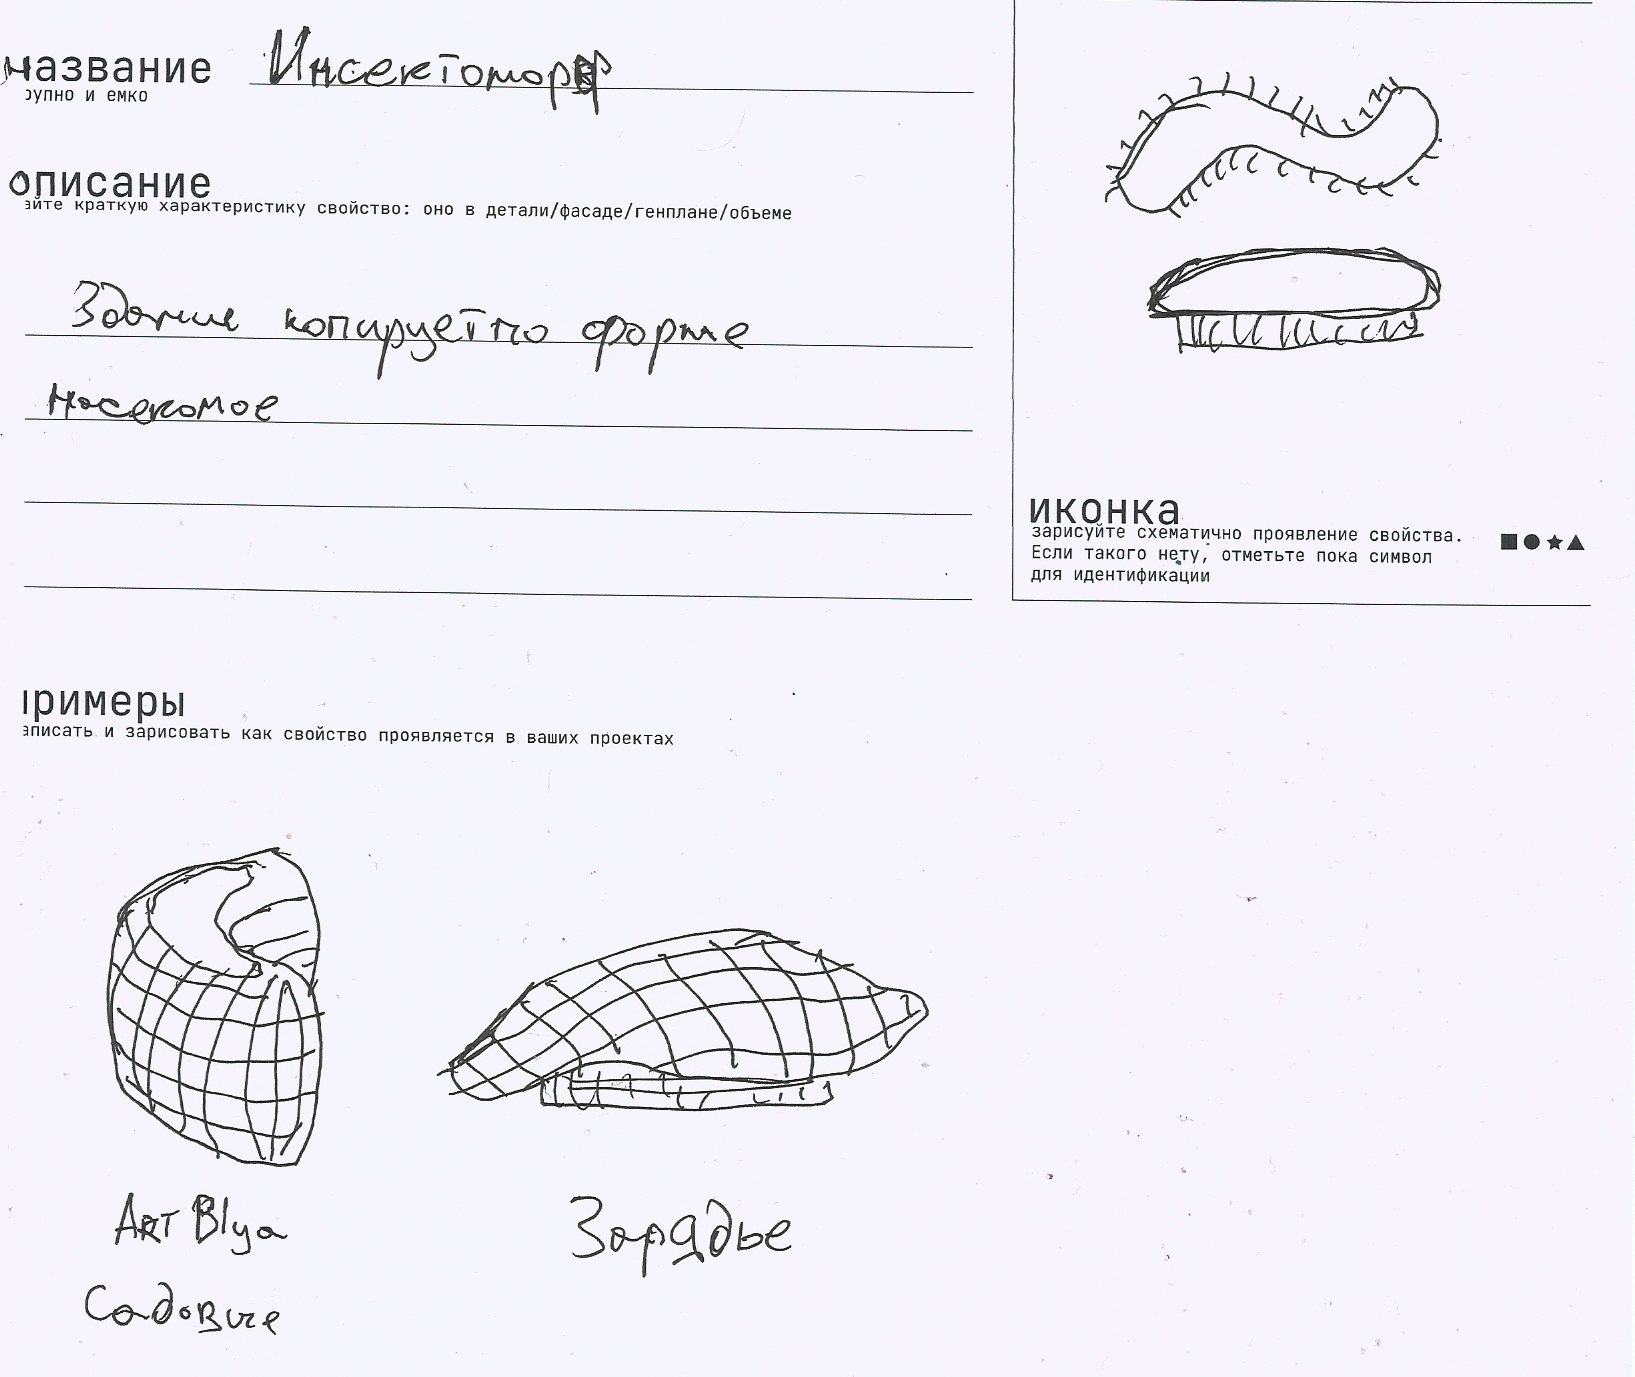 название
Инсектоморф
рупно и емко
описание
айте краткую характеристику свойство: оно в детали/фасаде/генплане/объеме
Здание копирует по форме
насекомое
иконка
зарисуйте схематично проявление свойства.
Если такого нету, отметьте пока символ
для идентификации
примеры
аписать и зарисовать как свойство проявляется в ваших проектах
Art Blya
Зарядье
Садовые